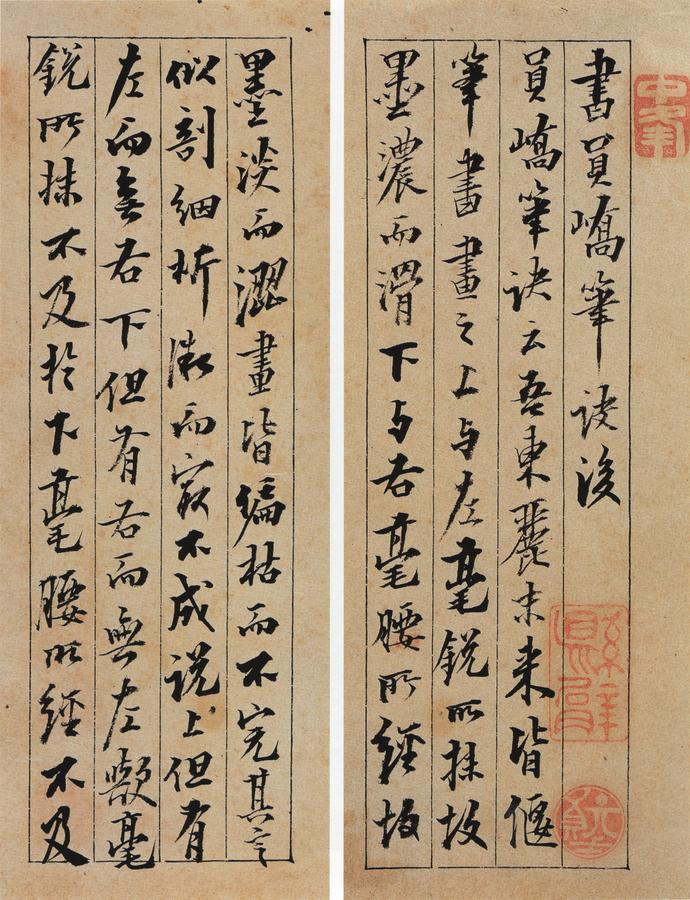 書員嶠筆訣後
員嶠筆訣云吾東麗末来皆偃
筆書畫之上与左毫銳所抹故
墨濃而滑下与右毫腰所經故
墨淡而澀畫皆偏枯而不完其言
似剖細析微而㝡不成説上但有
左而無右下但有右而無左歟毫
銳所抹不及於下毫腰所經不及